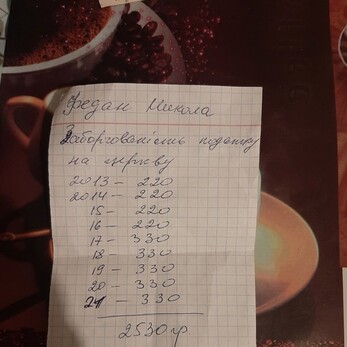 Федан Микола
Заборгованість податку
на церкву
2013 - 220
2014 - 220
15 - 220
16 - 220
17 - 330
18 - 330
19 - 330
20 - 330
21 - 330
2530 гр